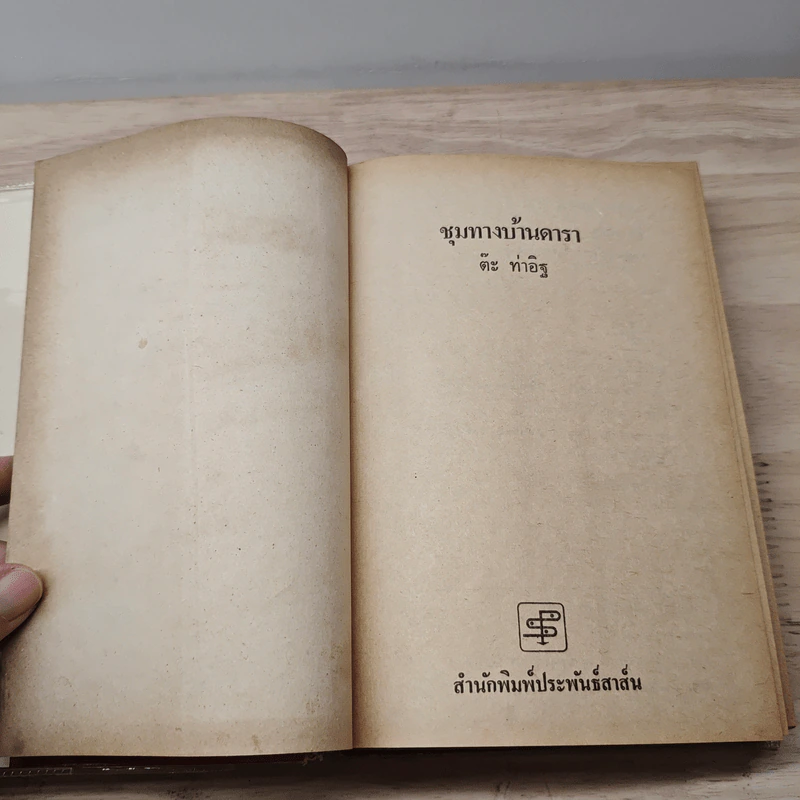 ชุมทางบ้านดารา
ต๊ะ ท่าอิฐ
สำนักพิมพ์ประพันธ์สาส์น